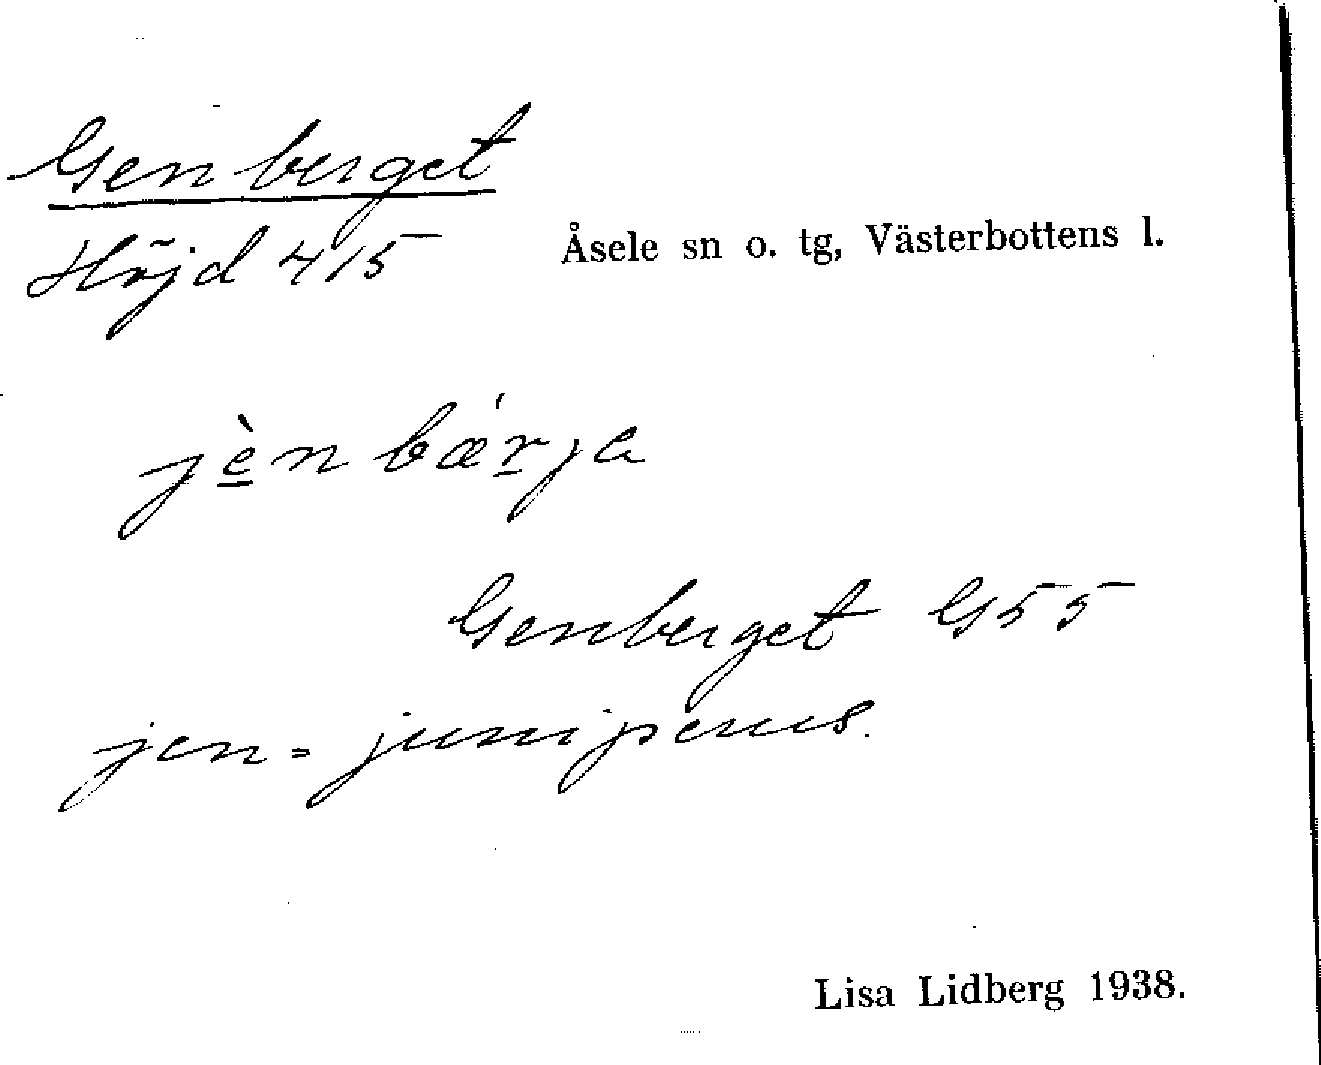 Genberget
Höjd 415 Åsele sn o. tg, Västerbottens l.
jè̲nbǽr̲ja
Genberget G55
jen = juniperus.
Lisa Lidberg 1938.